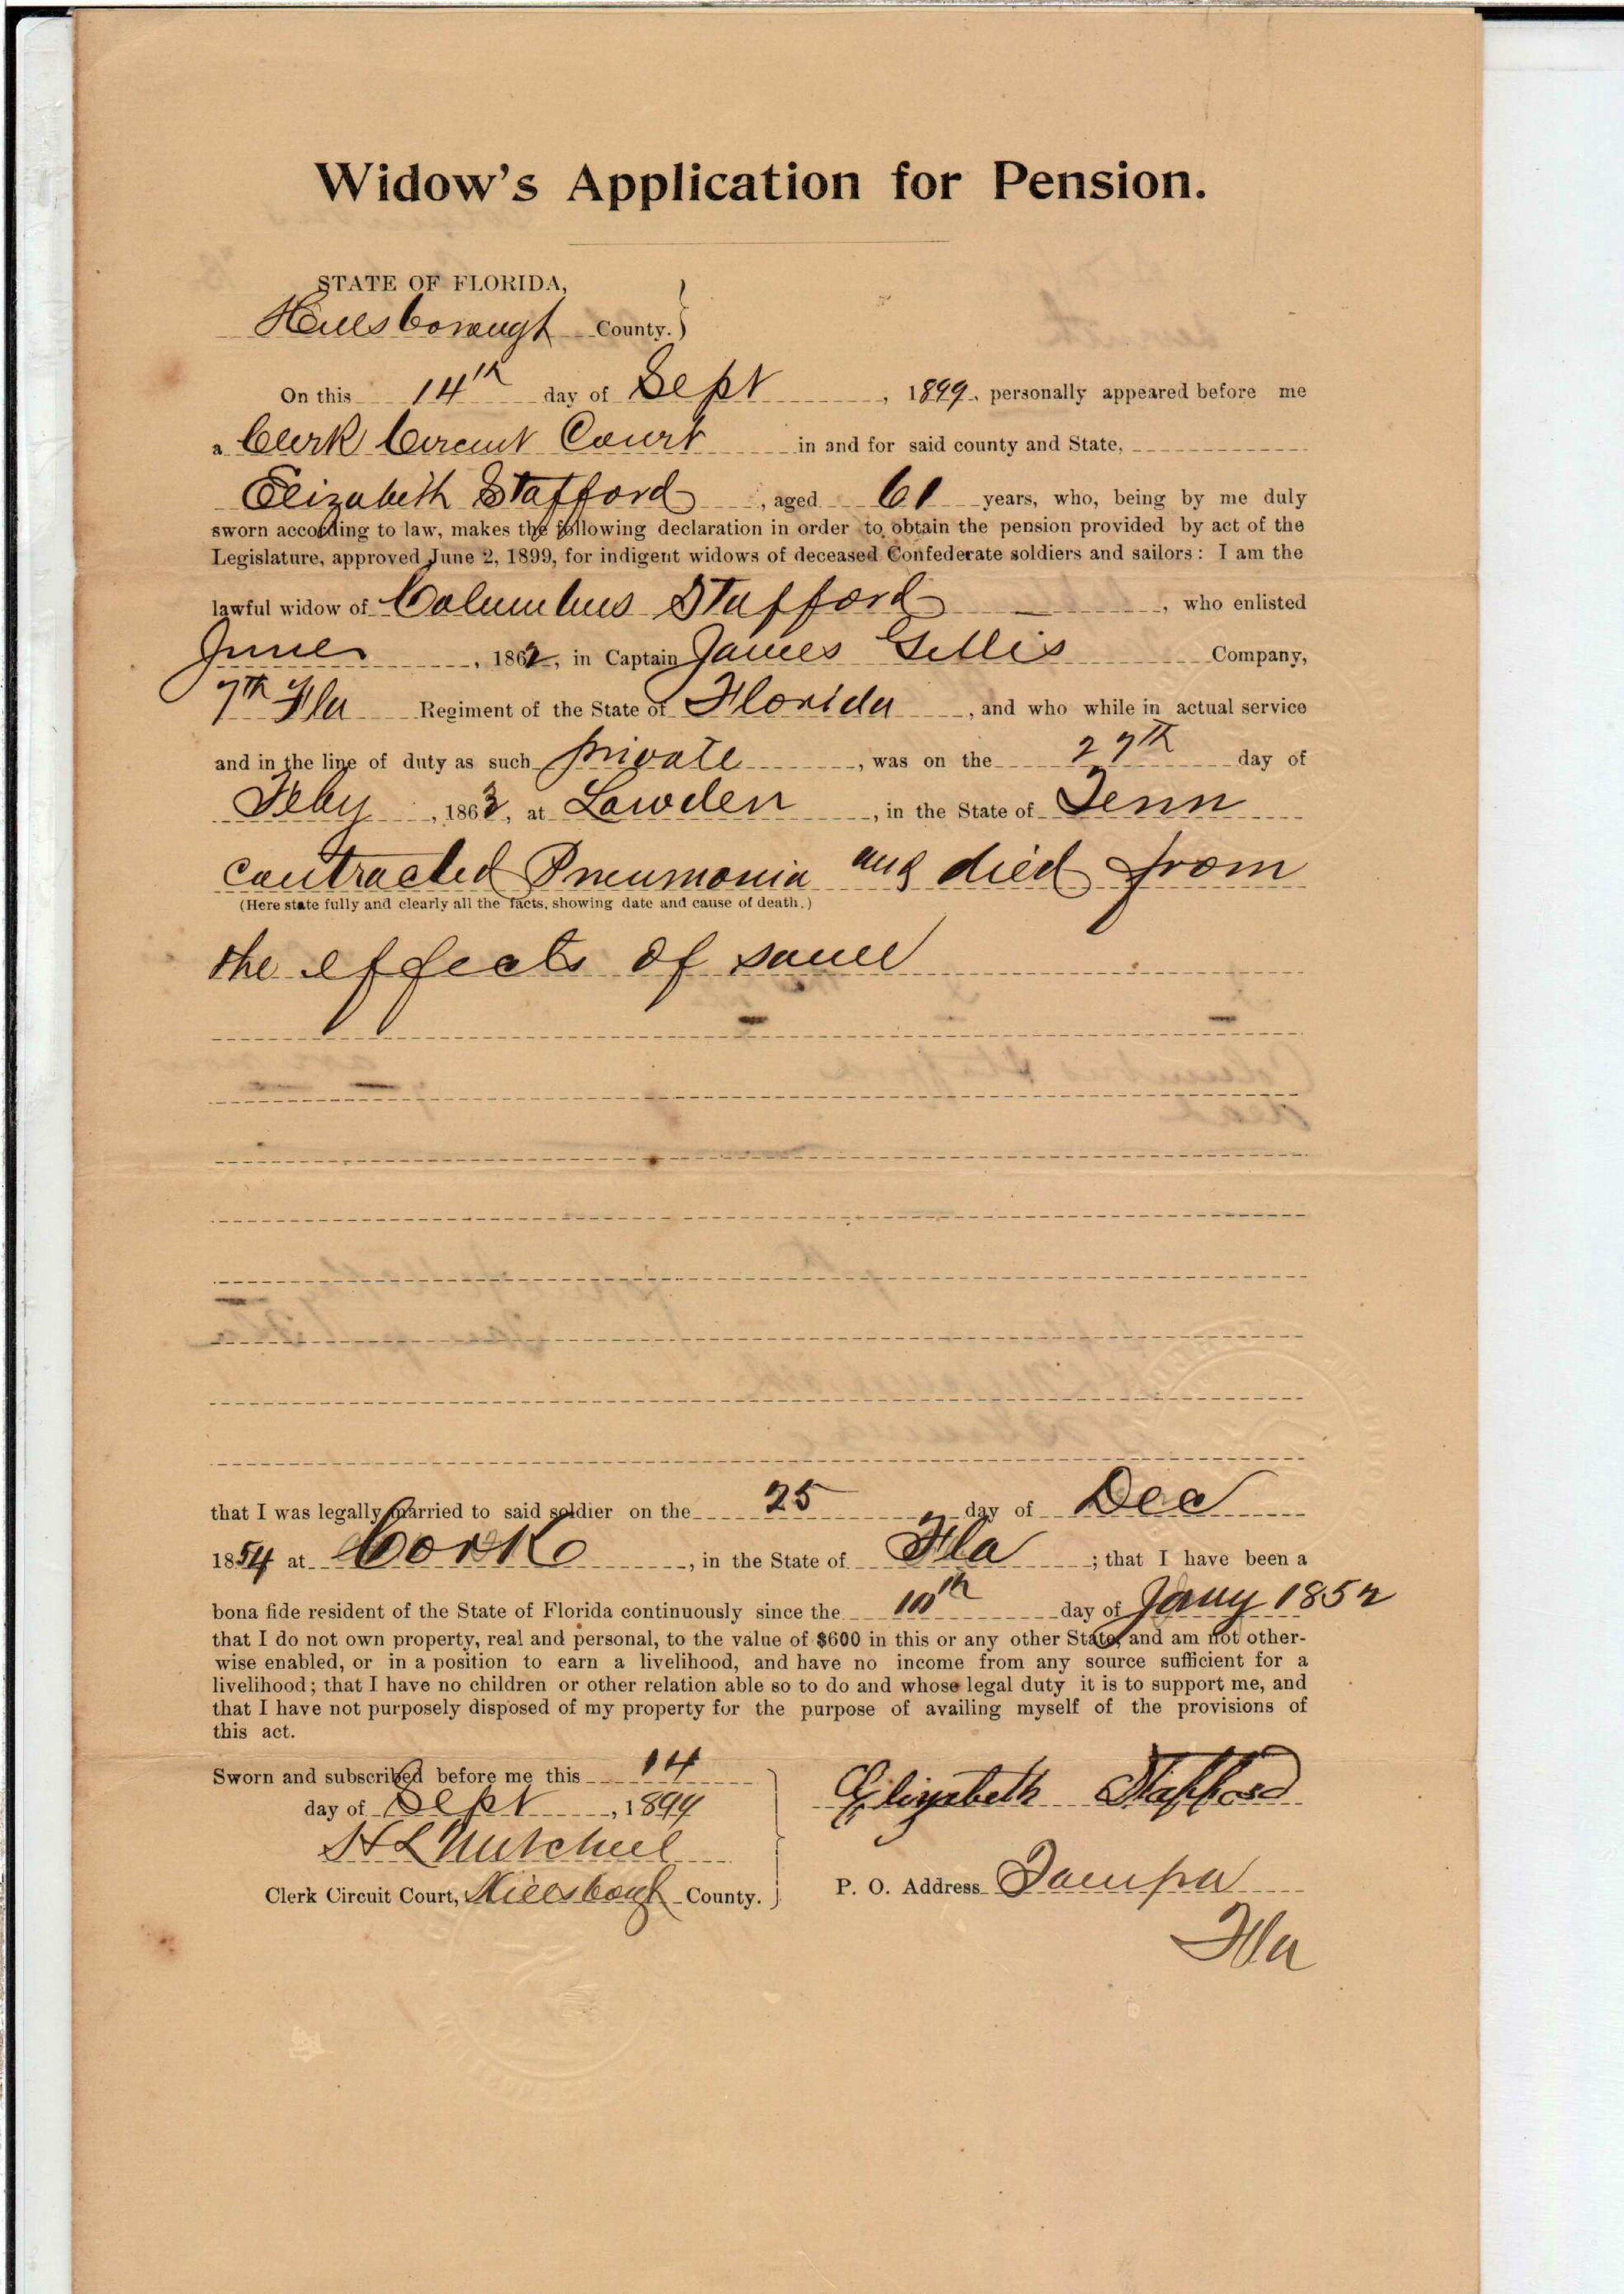 Widow's Application for Pension.
STATE OF FLORIDA,
Hillsborough County.
On this 14th day of Sept, 1899. personally appeared before me
a Clerk Circuit Court in and for said county and State,
Elizabeth Stafford, aged 61 years, who, being by me duly
sworn according to law, makes the following declaration in order to obtain the pension provided by act of the
Legislature, approved June 2, 1899, for indigent widows of deceased Confederate soldiers and sailors: I am the
lawful widow of Columbus Stafford, who enlisted
June, 1862, in Captain James Gettis Company,
7th Fla Regiment of the State of Florida, and who while in actual service
and in the line of duty as such private, was on the 27th day of
Feby, 1863, at Lowden, in the State of Tenn
contracted Pneumonia and died from
(Here state fully and clearly all the facts, showing date and cause of death.)
the effects of same
that I was legally married to said soldier on the 25 day of Dec
1854 at Cork, in the State of Fla; that I have been a
bona fide resident of the State of Florida continuously since the 10th day of Jany 1852
that I do not own property, real and personal, to the value of $600 in this or any other State, and am not other-
wise enabled, or in a position to earn a livelihood, and have no income from any source sufficient for a
livelihood; that I have no children or other relation able so to do and whose legal duty it is to support me, and
that I have not purposely disposed of my property for the purpose of availing myself of the provisions of
this act.
Sworn and subscribed before me this 14
day of Sept, 1899
Elizabeth Stafford
H L Mitchell
Clerk Circuit Court, Hillsbough County.
P. O. Address Tampa
Fla